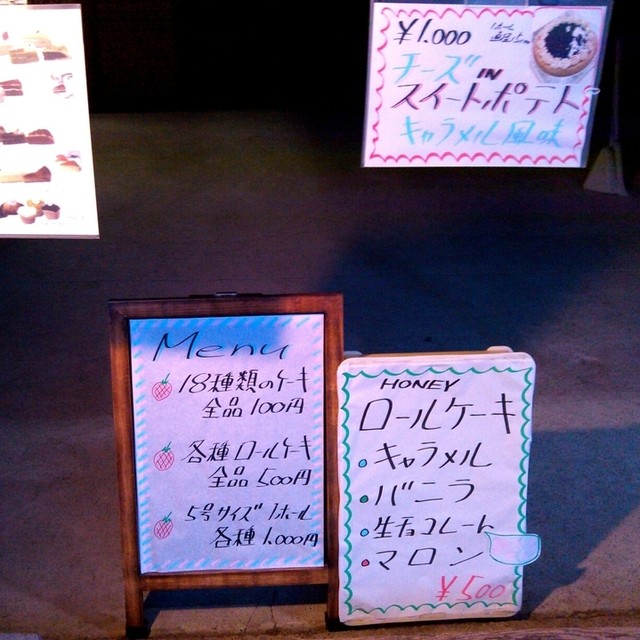 ¥1.000
1ホール
チーズIN
スイートポテト
キャラメル風味
Menu
18種類のケーキ
全品100円
各種ロールケーキ
全品500円
5号サイズ1ホール
各種1.000円
HONEY
ロールケーキ
キャラメル
バニラ
生チョコレート
マロン
¥500